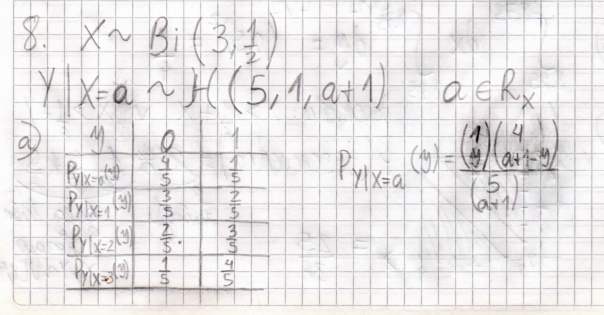 8. X ~ Bi(3, 1/2)
Y|X=a ~ H(5, 1, a+1) a ∈ R_X
a) y 0 1
P_{Y|X=0}(y) 4/5 1/5
P_{Y|X=1}(y) 3/5 2/5
P_{Y|X=2}(y) 2/5 3/5
P_{Y|X=3}(y) 1/5 4/5
P_{Y|X=a}(y) = \frac{\binom{1}{y}\binom{4}{a+1-y}}{\binom{5}{a+1}}